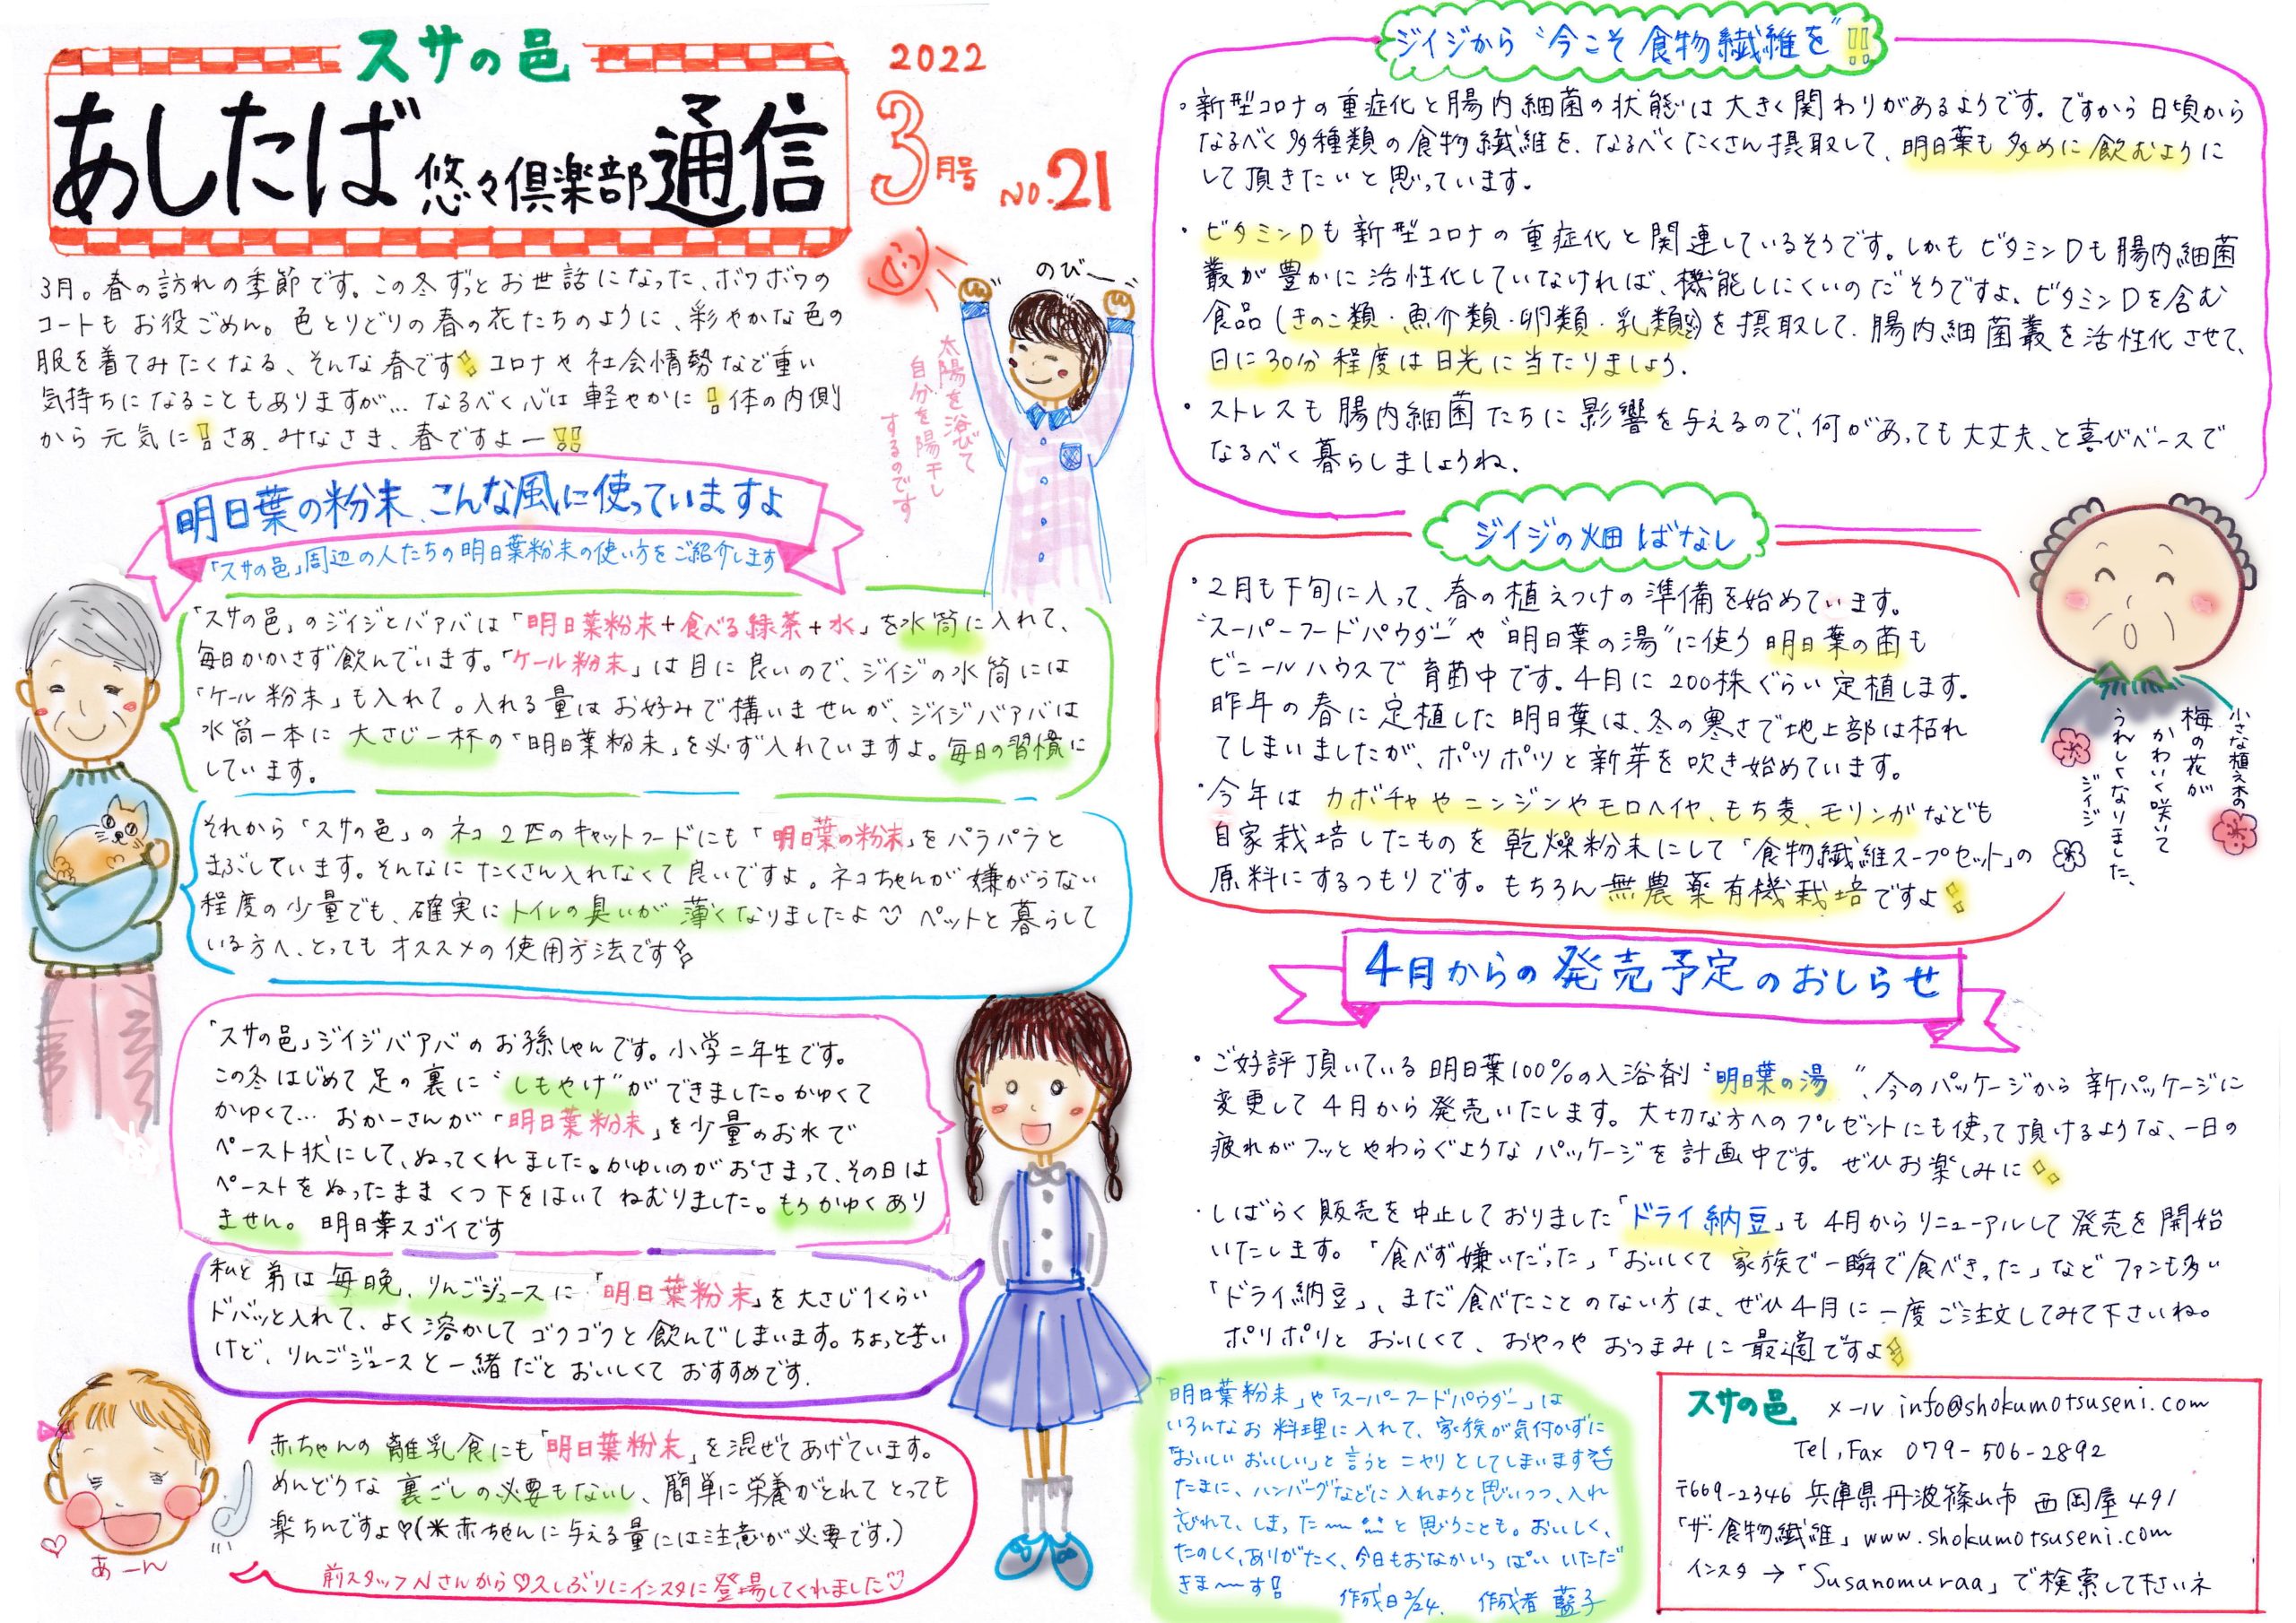 スサの邑
あしたば悠々倶楽部通信
2022
3月号
NO.21
3月。春の訪れの季節です。この冬ずっとお世話になった、ボワボワの
コートもお役ごめん。色とりどりの春の花たちのように、彩やかな色の
服を着てみたくなる、そんな春です！コロナや社会情勢などで重い
気持ちになることもありますが… なるべく心は軽やかに！体の内側
から元気に！さぁ、みなさま、春ですよー!!
のびー
太陽を浴びて
自分を陽干し
するのです
明日葉の粉末、こんな風に使っていますよ
「スサの邑」周辺の人たちの明日葉粉末の使い方をご紹介します
「スサの邑」のジイジとバアバは「明日葉粉末+食べる緑茶+水」を水筒に入れて、
毎日かかさず飲んでいます。「ケール粉末」は目に良いので、ジイジの水筒には
「ケール粉末」も入れて。入れる量はお好みで構いませんが、ジイジバアバは
水筒一本に大さじ一杯の「明日葉粉末」を必ず入れていますよ。毎日の習慣に
しています。
それから「スサの邑」のネコ2匹のキャットフードにも「明日葉の粉末」をパラパラと
まぶしています。そんなにたくさん入れなくて良いですよ。ネコちゃんが嫌がらない
程度の少量でも、確実にトイレの臭いが薄くなりましたよ ペットと暮らして
いる方へ、とってもオススメの使用方法です！
「スサの邑」ジイジバアバのお孫しゃんです。小学二年生です。
この冬はじめて足の裏に“しもやけ”ができました。かゆくて
かゆくて… おかーさんが「明日葉粉末」を少量のお水で
ペースト状にして、ぬってくれました。かゆいのがおさまって、その日は
ペーストをぬったままくつ下をはいてねむりました。もうかゆくあり
ません。 明日葉スゴイです
私と弟は毎晩、りんごジュースに「明日葉粉末」を大さじ1くらい
ドバッと入れて、よく溶かしてゴクゴクと飲んでしまいます。ちょっと苦い
けど、りんごジュースと一緒だとおいしくておすすめです。
赤ちゃんの離乳食にも「明日葉粉末」を混ぜてあげています。
めんどうな裏ごしの必要もないし、簡単に栄養がとれてとっても
楽ちんですよ♡(※赤ちゃんに与える量には注意が必要です。)
あーん
前スタッフNさんから♡久しぶりにインスタに登場してくれました
ジイジから“今こそ食物繊維を”!!
・新型コロナの重症化と腸内細菌の状態は大きく関わりがあるようです。ですから日頃から
なるべく多種類の食物繊維を、なるべくたくさん摂取して、明日葉も多めに飲むように
して頂きたいと思っています。
・ビタミンDも新型コロナの重症化と関連しているそうです。しかもビタミンDも腸内細菌
叢が豊かに活性化していなければ、機能しにくいのだそうですよ。ビタミンDを含む
食品(きのこ類・魚介類・卵類・乳類など)を摂取して、腸内細菌叢を活性化させて、
日に30分程度は日光に当たりましょう。
・ストレスも腸内細菌たちに影響を与えるので、何があっても大丈夫、と喜びベースで
なるべく暮らしましょうね。
ジイジの畑ばなし
・2月も下旬に入って、春の植えつけの準備を始めています。
“スーパーフードパウダー”や“明日葉の湯”に使う明日葉の苗も
ビニールハウスで育苗中です。4月に200株ぐらい定植します。
昨年の春に定植した明日葉は、冬の寒さで地上部は枯れ
てしまいましたが、ポツポツと新芽を吹き始めています。
・今年はカボチャやニンジンやモロヘイヤ、もち麦、モリンガなども
自家栽培したものを乾燥粉末にして「食物繊維スープセット」の
原料にするつもりです。もちろん無農薬有機栽培ですよ！
小さな植木の
梅の花が
かわいく咲いて
うれしくなりました、
ジイジ
4月からの発売予定のおしらせ
・ご好評頂いている明日葉100%の入浴剤“明日葉の湯”、今のパッケージから新パッケージに
変更して4月から発売いたします。大切な方へのプレゼントにも使って頂けるような、一日の
疲れがフッとやわらぐようなパッケージを計画中です。ぜひお楽しみに
・しばらく販売を中止しておりました「ドライ納豆」も4月からリニューアルして発売を開始
いたします。「食べず嫌いだった」「おいしくて家族で一瞬で食べきった」などファンも多い
「ドライ納豆」、まだ食べたことのない方は、ぜひ4月に一度ご注文してみて下さいね。
ポリポリとおいしくて、おやつやおつまみに最適ですよ！
「明日葉粉末」や「スーパーフードパウダー」は
いろんなお料理に入れて、家族が気付かずに
「おいしいおいしい」と言うとニヤリとしてしまいます
たまに、ハンバーグなどに入れようと思いつつ、入れ
忘れて、しまった〜と思うことも。おいしく、
たのしく、ありがたく、今日もおなかいっぱいいただ
きま〜す！ 作成日2/24. 作成者 藍子
スサの邑 メール info@shokumotsuseni.com
Tel,Fax 079-506-2892
〒669-2346 兵庫県丹波篠山市西岡屋491
「ザ・食物繊維」www.shokumotsuseni.com
インスタ→「Susanomuraa」で検索して下さいネ